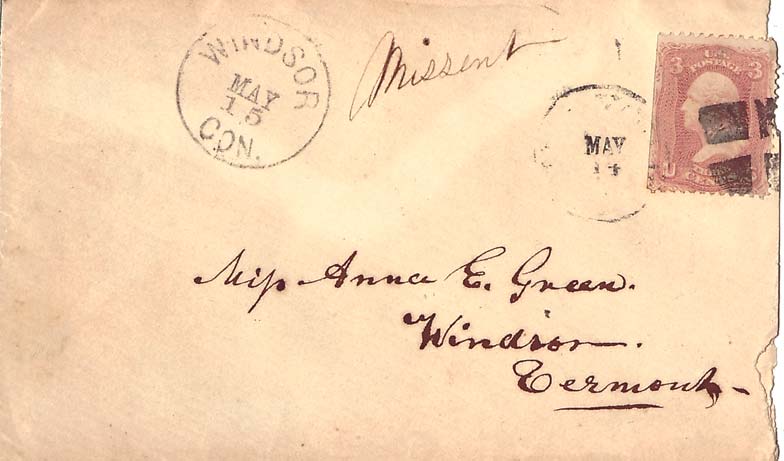 WINDSOR
MAY
15
CON.
Missent
MAY
14
U.S.
POSTAGE
3 3
U
Miss Anna E. Green.
Windsor.
Vermont